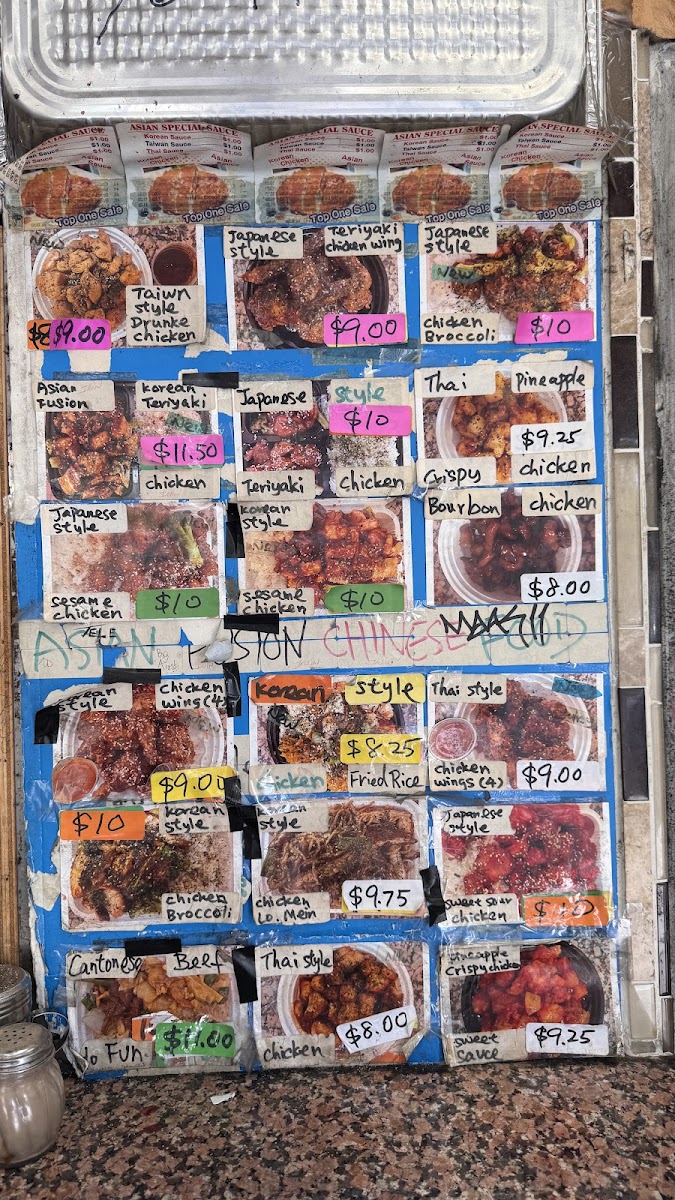 ASIAN SPECIAL SAUCE
Korean Sauce $1.00
Taiwan Sauce $1.00
Thai Sauce $1.00
Korean Chicken Asian
Top One Sale
ASIAN SPECIAL SAUCE
Korean Sauce $1.00
Taiwan Sauce $1.00
Thai Sauce $1.00
Korean Chicken Asian
Top One Sale
ASIAN SPECIAL SAUCE
Korean Sauce $1.00
Taiwan Sauce $1.00
Thai Sauce $1.00
Korean Chicken Asian
Top One Sale
ASIAN SPECIAL SAUCE
Korean Sauce $1.00
Taiwan Sauce $1.00
Thai Sauce $1.00
Korean Chicken Asian
Top One Sale
ASIAN SPECIAL SAUCE
Korean Sauce $1.00
Taiwan Sauce $1.00
Thai Sauce $1.00
Korean Chicken Asian
Top One Sale
New
Taiwn
style
Drunke
chicken
$9.00
Japanese
style
Teriyaki
chicken wing
$9.00
Japanese
style
New
chicken
Broccoli
$10
Asian
Fusion
korean
Teriyaki
New
$11.50
chicken
Japanese style
$10
Teriyaki chicken
Thai Pineapple
$9.25
Crispy chicken
Japanese
style
sesame
chicken
$10
korean
style
New
sesame
chicken
$10
Bourbon chicken
$8.00
ASIAN FUSION CHINESE FOOD
korean
style
chicken
wings (4)
$9.00
korean style
New
$8.25
chicken Fried Rice
Thai style
New
chicken
wings (4)
$9.00
$10
korean
style
chicken
Broccoli
korean
style
chicken
Lo. Mein
$9.75
Japanese
style
sweet sour
chicken
$10
Cantonese Beef
Ho Fun
$11.00
Thai style
chicken
$8.00
pineapple
Crispy chicken
sweet
sauce
$9.25